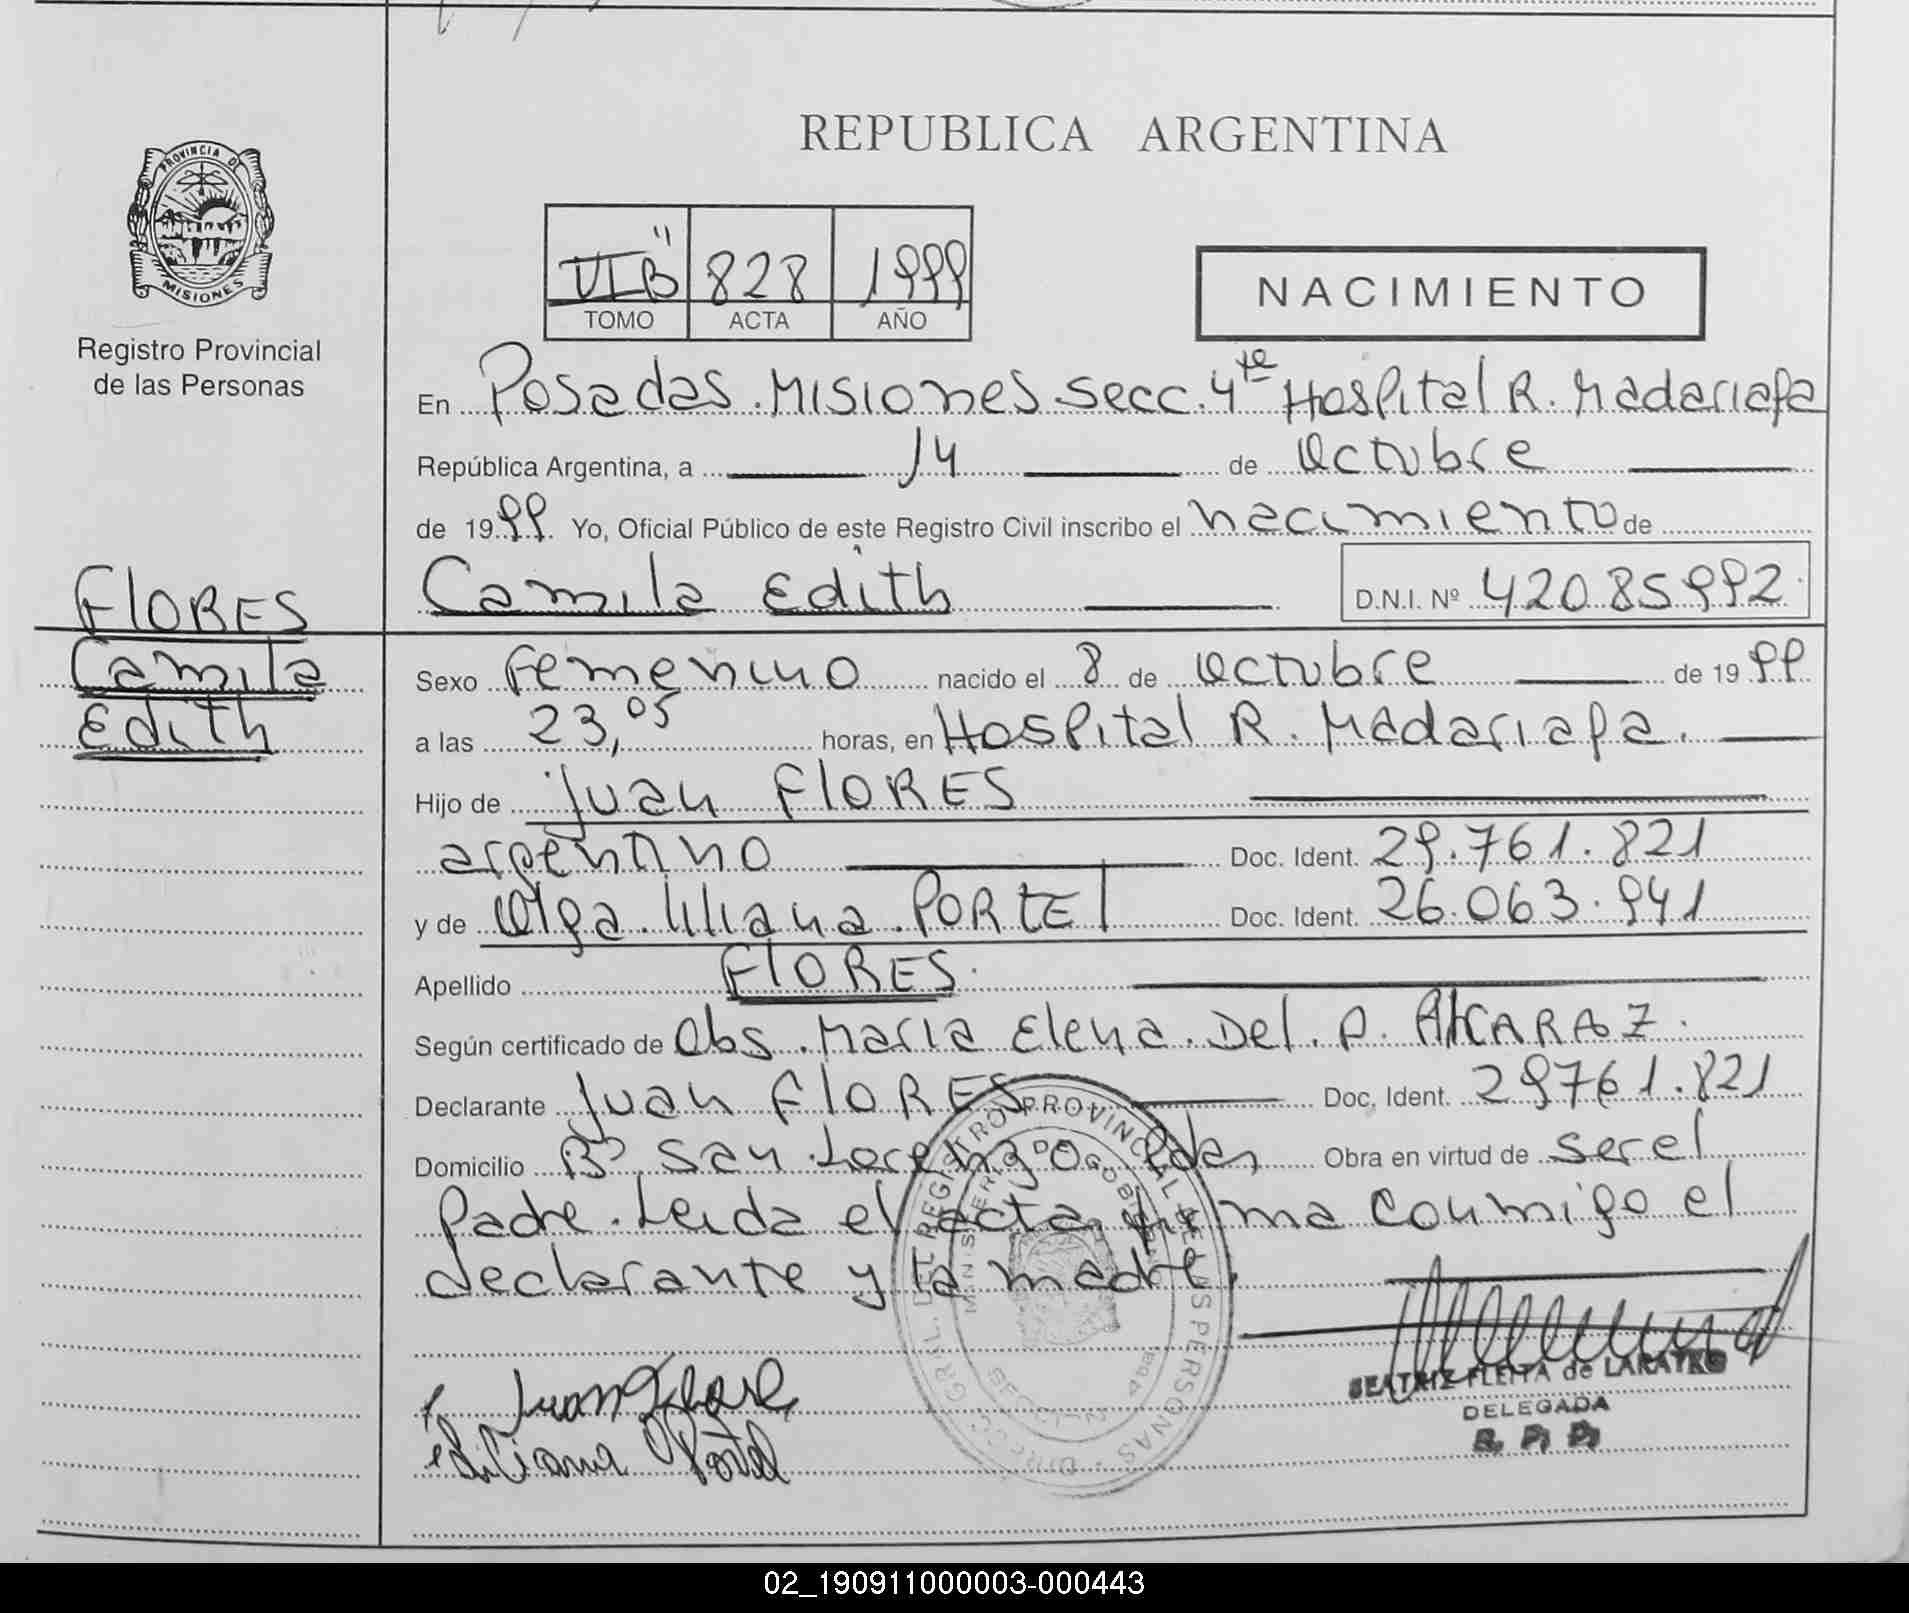 REPUBLICA ARGENTINA
PROVINCIA DE
MISIONES
Registro Provincial
de las Personas
VI "B" 828 1999
TOMO ACTA AÑO
NACIMIENTO
En Posadas. Misiones. secc. 4ta Hospital R. Madariaga
República Argentina, a 14 de Octubre
de 1999. Yo, Oficial Público de este Registro Civil inscribo el nacimiento de
Camila Edith D.N.I. Nº 42085992.
FLORES
Camila
Edith
Sexo Femenino nacido el 8 de Octubre de 1999
a las 23,05 horas, en Hospital R. Madariaga.
Hijo de Juan FLORES
argentino Doc. Ident. 29.761.821
y de Olga Liliana PORTEL Doc. Ident. 26.063.941
Apellido FLORES.
Según certificado de Obs. Maria Elena. Del. P. AlCARAZ.
Declarante Juan FLORES Doc. Ident. 29761.821
Domicilio Bº San Lorenzo Pdas, Obra en virtud de ser el
Padre. Leida el acta, firma conmigo el
declarante y la madre.
DIREC. GRAL. DEL REGISTRO PROVINCIAL DE LAS PERSONAS
MINISTERIO DE GOBIERNO
Juan Flores
Liliana Portel
BEATRIZ FLEITA de LARATRO
DELEGADA
R. P. P.
02_190911000003-000443